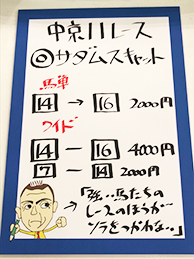 中京11レース
◎サダムスキャット
馬単
14 → 16 2000円
ワイド
14 － 16 4000円
7 － 14 2000円
「強い馬たちの
レースのほうが
ソラをつかわない」